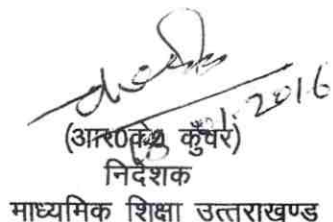 2016
(आर०के० कुँवर)
निदेशक
माध्यमिक शिक्षा उत्तराखण्ड